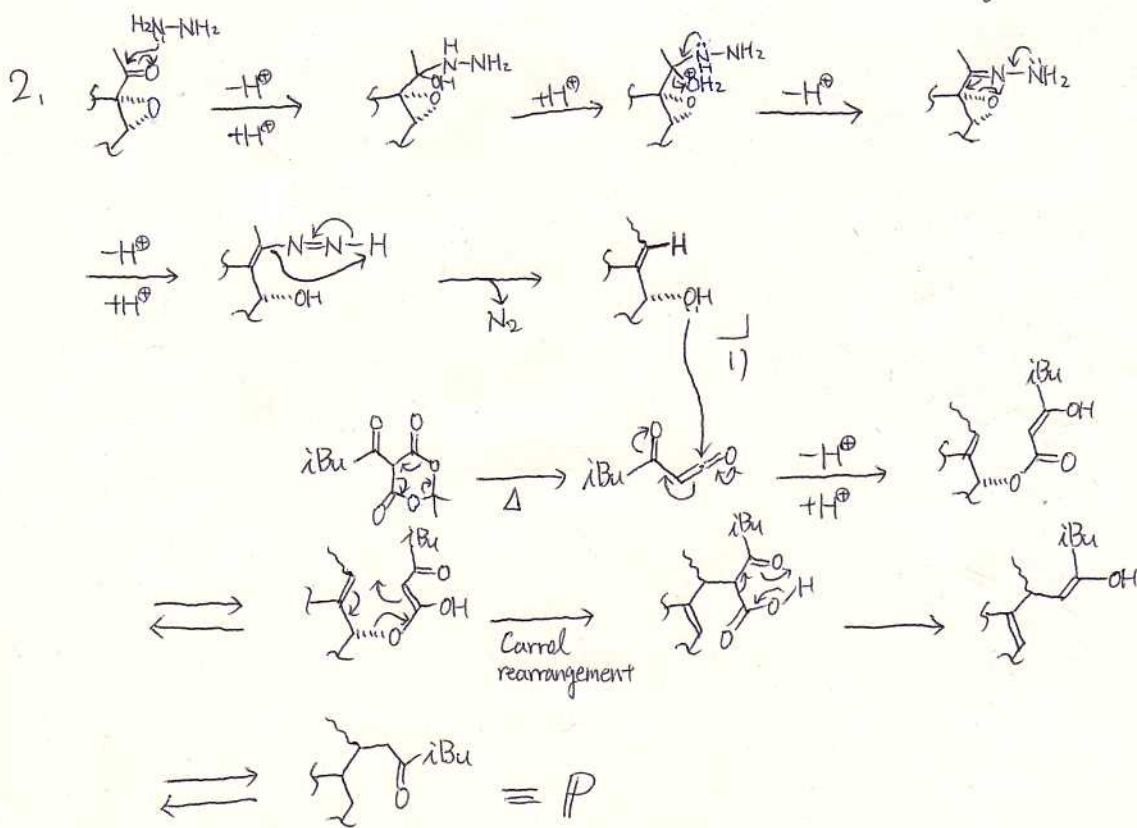 H₂N-NH₂
2.
O
O
-H⊕
+H⊕
H
N-NH₂
OH
O
+H⊕
N-NH₂
H
OH₂
O
-H⊕
N-NH₂
O
-H⊕
+H⊕
N=N-H
OH
N₂
H
OH
1)
iBu
O
O
O
O
O
Δ
iBu
O
O
-H⊕
+H⊕
iBu
OH
O
O
iBu
O
OH
O
Carrol
rearrangement
iBu
O
H
O
O
iBu
OH
iBu
O
≡ P